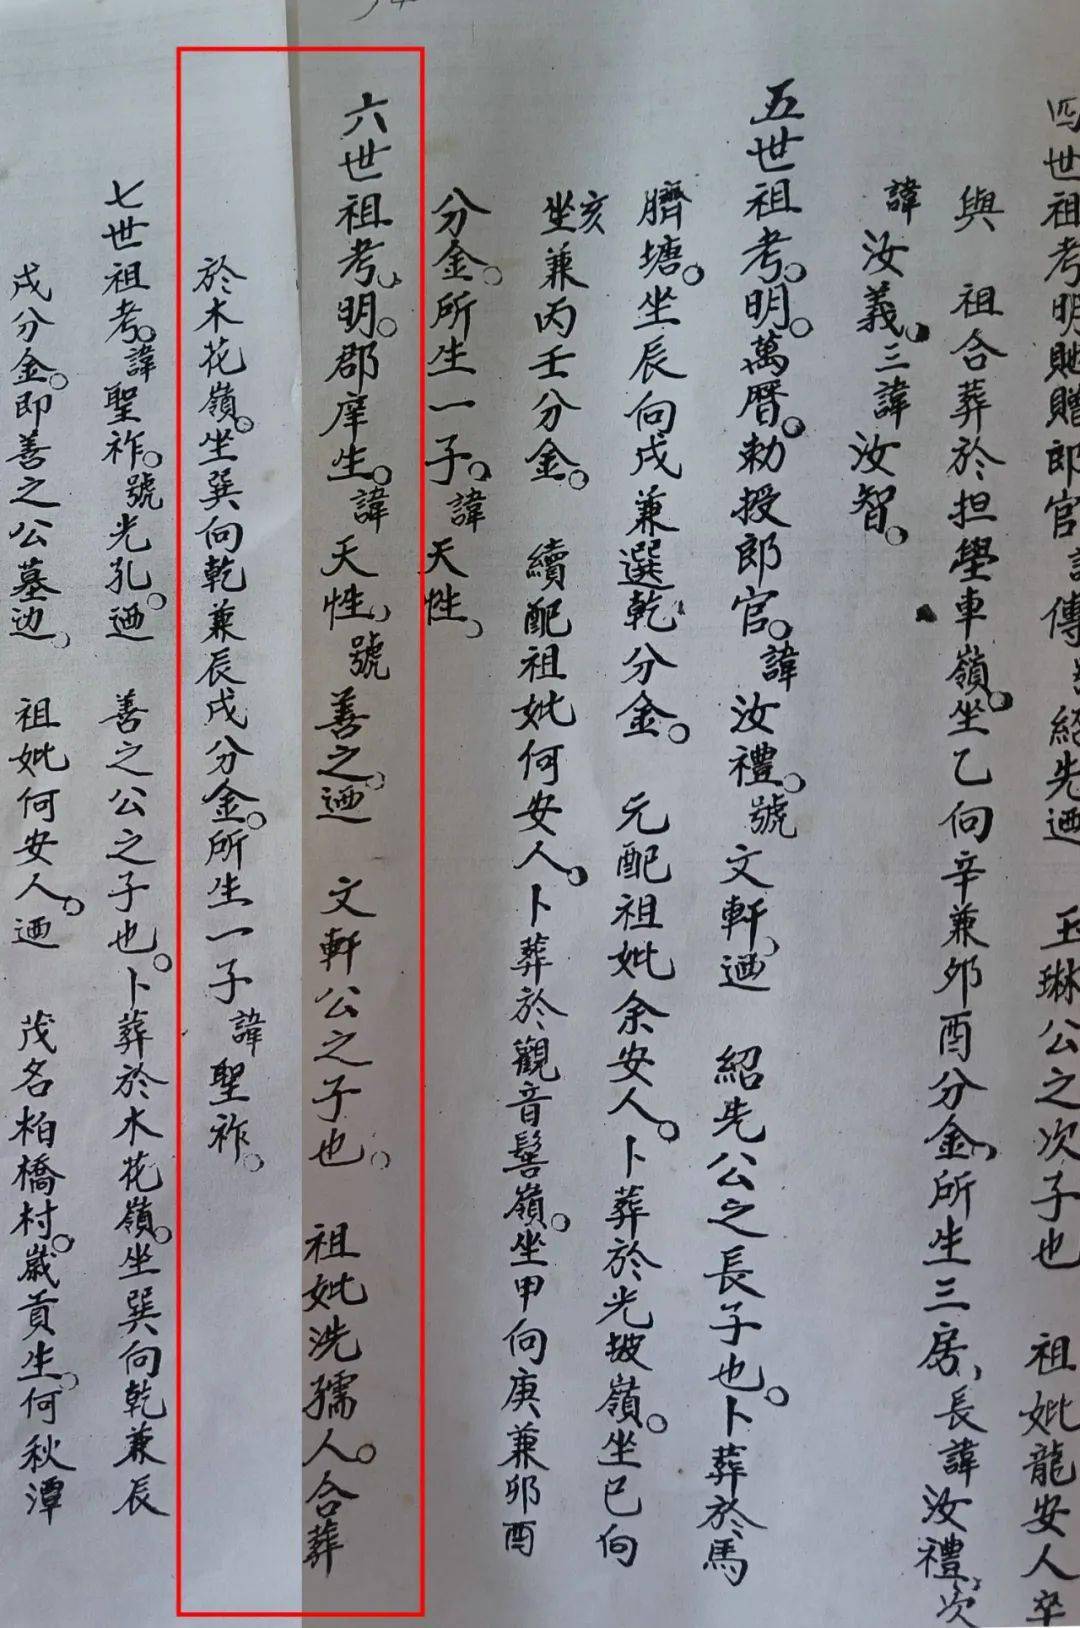 四世祖考明貤贈郎官諱傳號紹先迺　玉琳公之次子也　祖妣龍安人卒
與　祖合葬於担學車嶺。坐乙向辛兼夘酉分金，所生三房，長諱汝禮，次
諱汝義。三諱汝智。
五世祖考。明。萬曆。勅授郎官。諱汝禮。號文軒，迺　紹先公之長子也。卜葬於馬
臍塘。坐辰向戌兼選乾分金。　元配祖妣余安人。卜葬於光坡嶺。坐巳向
亥坐兼丙壬分金。　續配祖妣何安人。卜葬於觀音髻嶺。坐甲向庚兼夘酉
分金。所生一子。諱天性，
六世祖考，明。郡庠生。諱天性，號善之。迺　文軒公之子也。　祖妣冼孺人。合葬
於木花嶺。坐巽向乾兼辰戌分金。所生一子諱聖祚。
七世祖考。諱聖祚。號光孔。迺　善之公之子也。卜葬於木花嶺。坐巽向乾兼辰
戌分金。即善之公墓边，　祖妣何安人。迺　茂名柏橋村。歲貢生。何秋潭